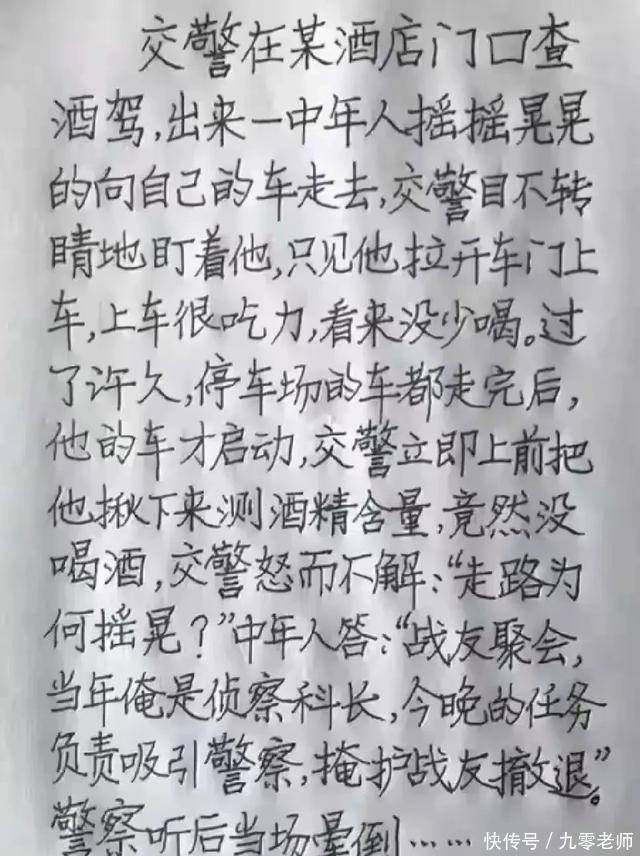 交警在某酒店门口查
酒驾,出来一中年人摇摇晃晃
的向自己的车走去,交警目不转
睛地盯着他,只见他拉开车门上
车,上车很吃力,看来没少喝。过
了许久,停车场的车都走完后,
他的车才启动,交警立即上前把
他揪下来测酒精含量,竟然没
喝酒,交警怒而不解:“走路为
何摇晃?”中年人答:“战友聚会,
当年俺是侦察科长,今晚的任务
负责吸引警察,掩护战友撤退”。
警察听后当场晕倒……
快传号/九零老师